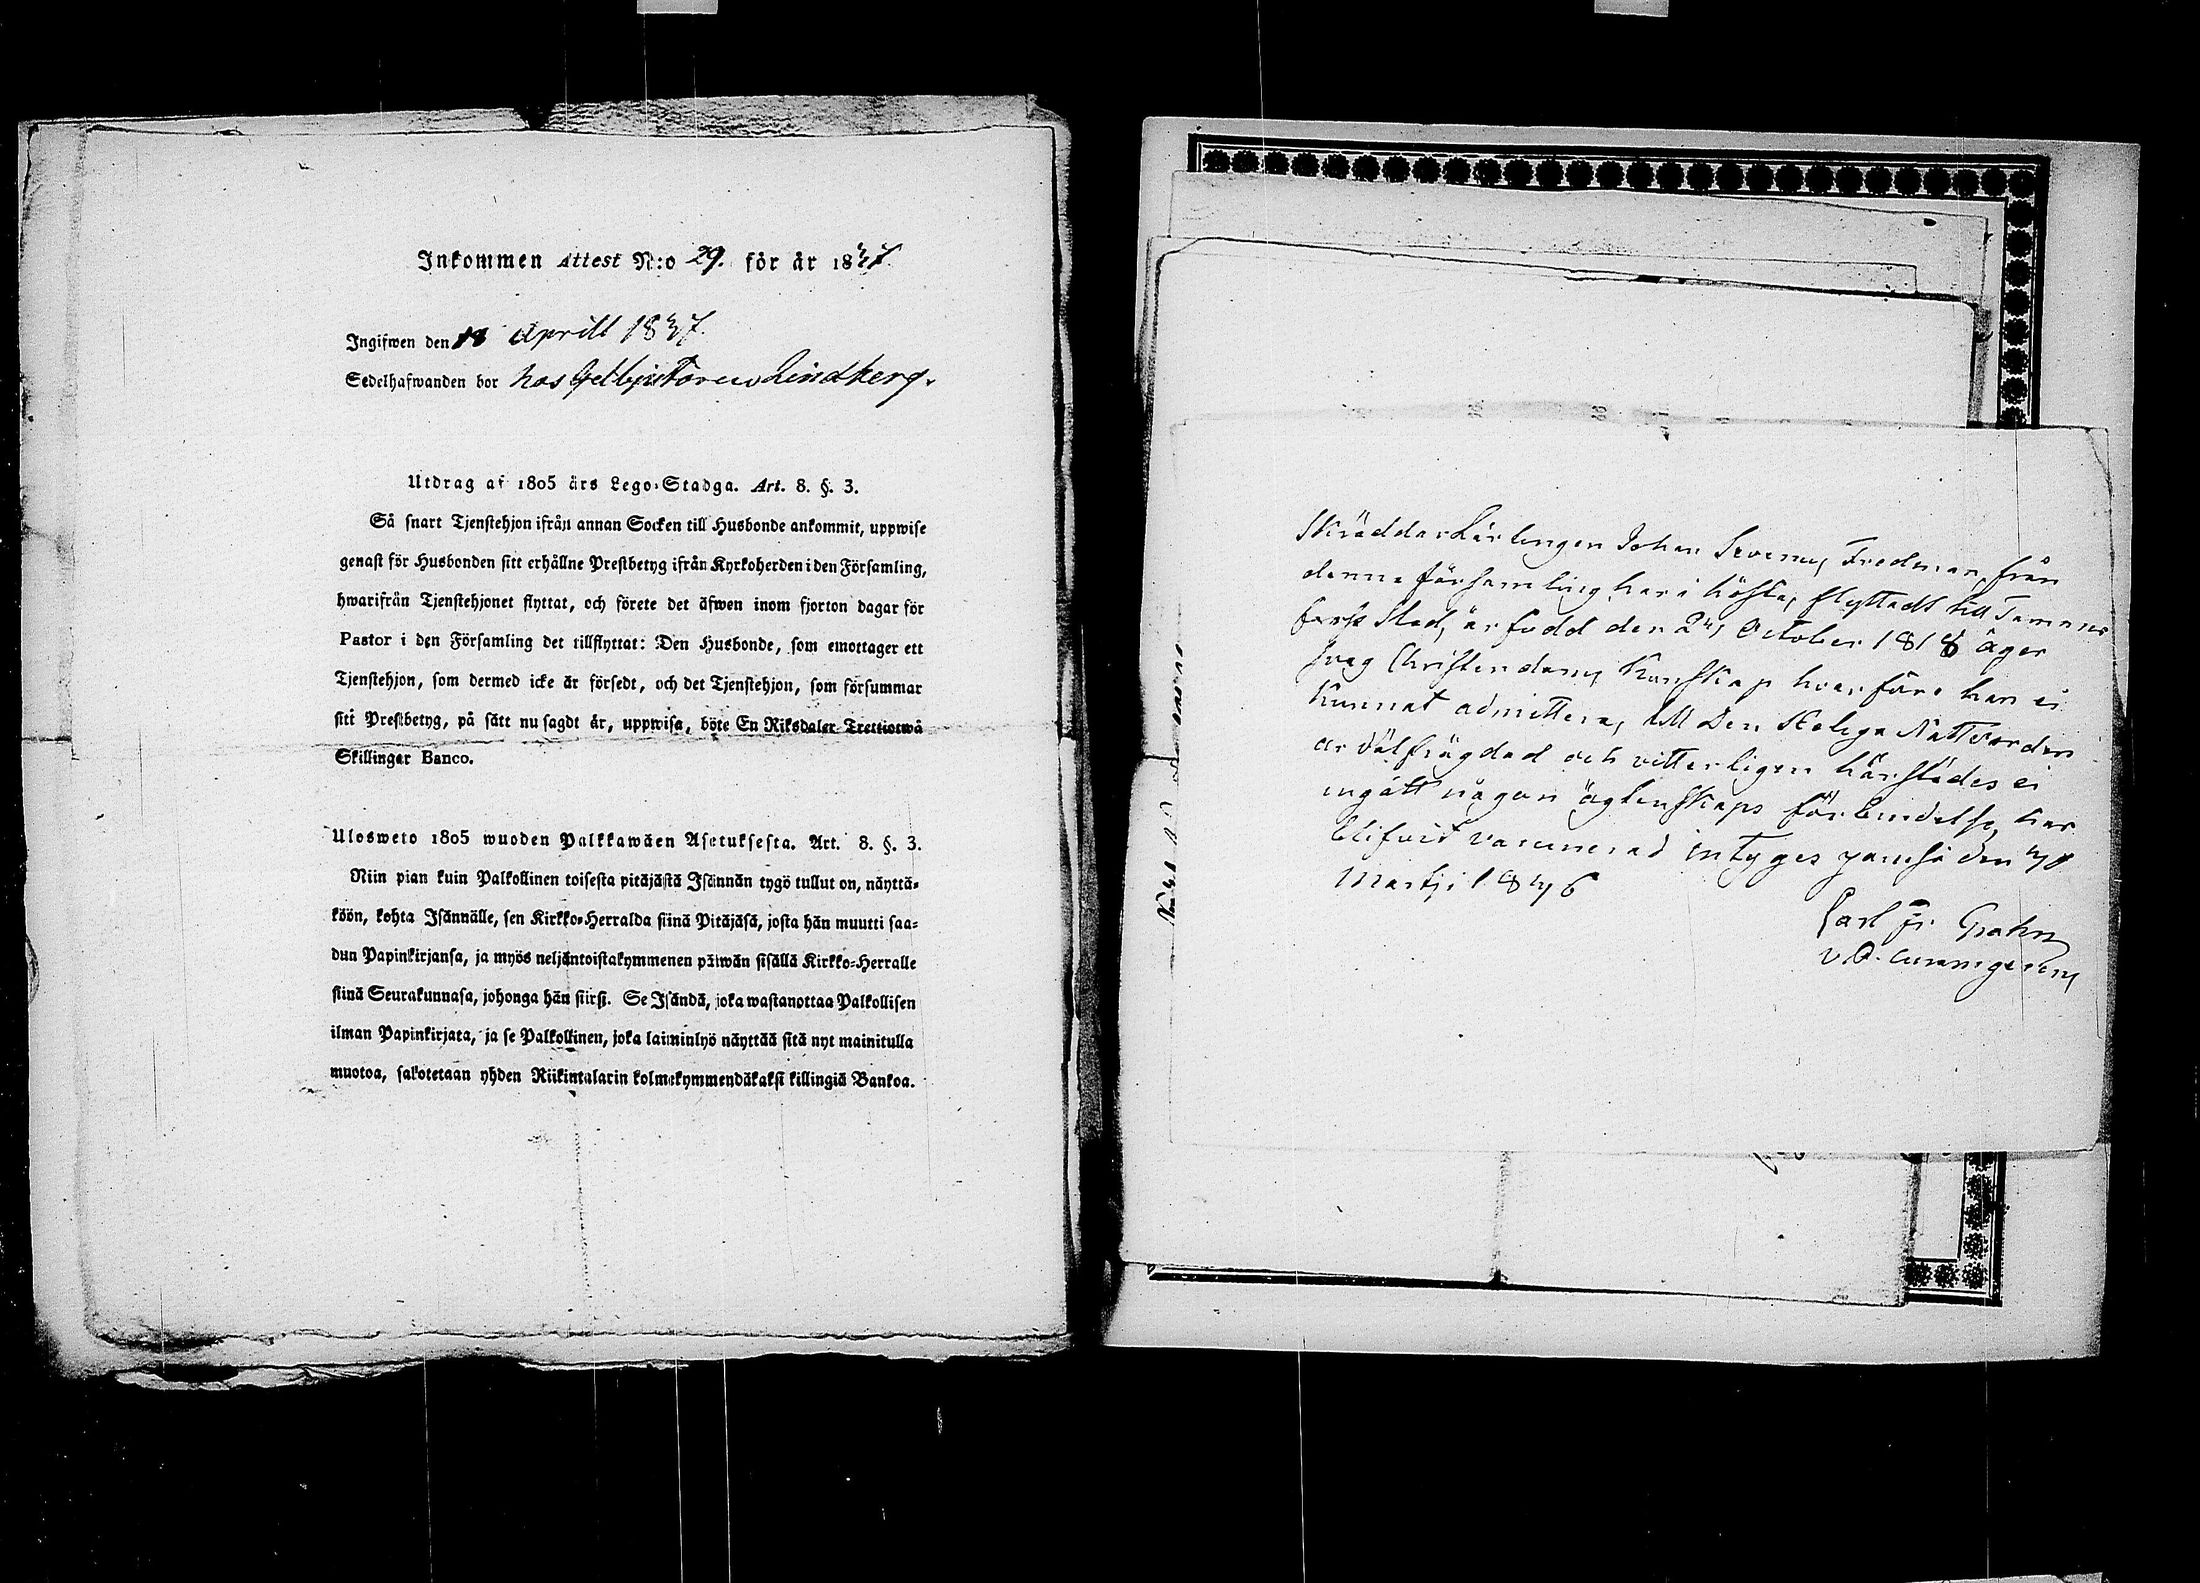 Inkommen Attest N:o 29. för år 1837.
Ingifwen den 18 Aprill 1837.
Sedelhafwanden bor hos Gelbgjutaren Lindberg.
Utdrag af 1805 års Lego-Stadga. Art. 8. §. 3.
Så snart Tjenstehjon ifrån annan Socken till Husbonde ankommit, uppwise
genast för Husbonden sitt erhållne Prestbetyg ifrån Kyrkoherden i den Församling,
hwarifrån Tjenstehjonet flyttat, och förete det äfwen inom fjorton dagar för
Pastor i den Församling det tillflyttat: Den Husbonde, som emottager ett
Tjenstehjon, som dermed icke är försedt, och det Tjenstehjon, som försummar
sitt Prestbetyg, på sätt nu sagdt är, uppwisa, böte En Riksdaler Trettiotwå
Skillingar Banco.
Ulosweto 1805 wuoden Palkkawäen Asetuksesta. Art. 8. §. 3.
Niin pian kuin Palkollinen toisesta pitäjästä Isännän tygö tullut on, näyttä-
köön, kohta Isännälle, sen Kirkko-Herralda siinä Pitäjäsä, josta hän muutti saa-
dun Papinkirjansa, ja myös neljäntoistakymmenen päiwän sisällä Kirkko-Herralle
siinä Seurakunnasa, johonga hän siirsi. Se Isändä, joka wastanottaa Palkollisen
ilman Papinkirjata, ja se Palkollinen, joka laiminlyö näyttää sitä nyt mainitulla
muotoa, sakotetaan yhden Riikintalarin kolmekymmendäkaksi killingiä Bankoa.
Skräddar Lärlingen Johan Fredman från
denna församling har i höstas flyttadt till Tammer
fors Stad, är född den 24 October 1818 äger
svag Christendoms Kunskap hvarföre han ei
kunnat admitteras till Den Heliga Nattvarden
är välfrägdad och vitterligen härstädes ei
ingått någon ägtenskaps förbindelse, har
blifvit vaccinerad intyges Jamsä den
Martji 1836
Carl Fr. Grahn
v. P. Cuummgerens